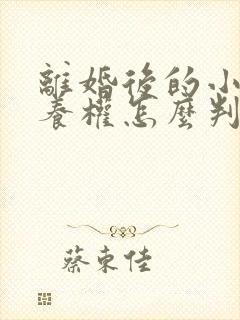 離婚後的小
養權怎麼判
蔡東佳